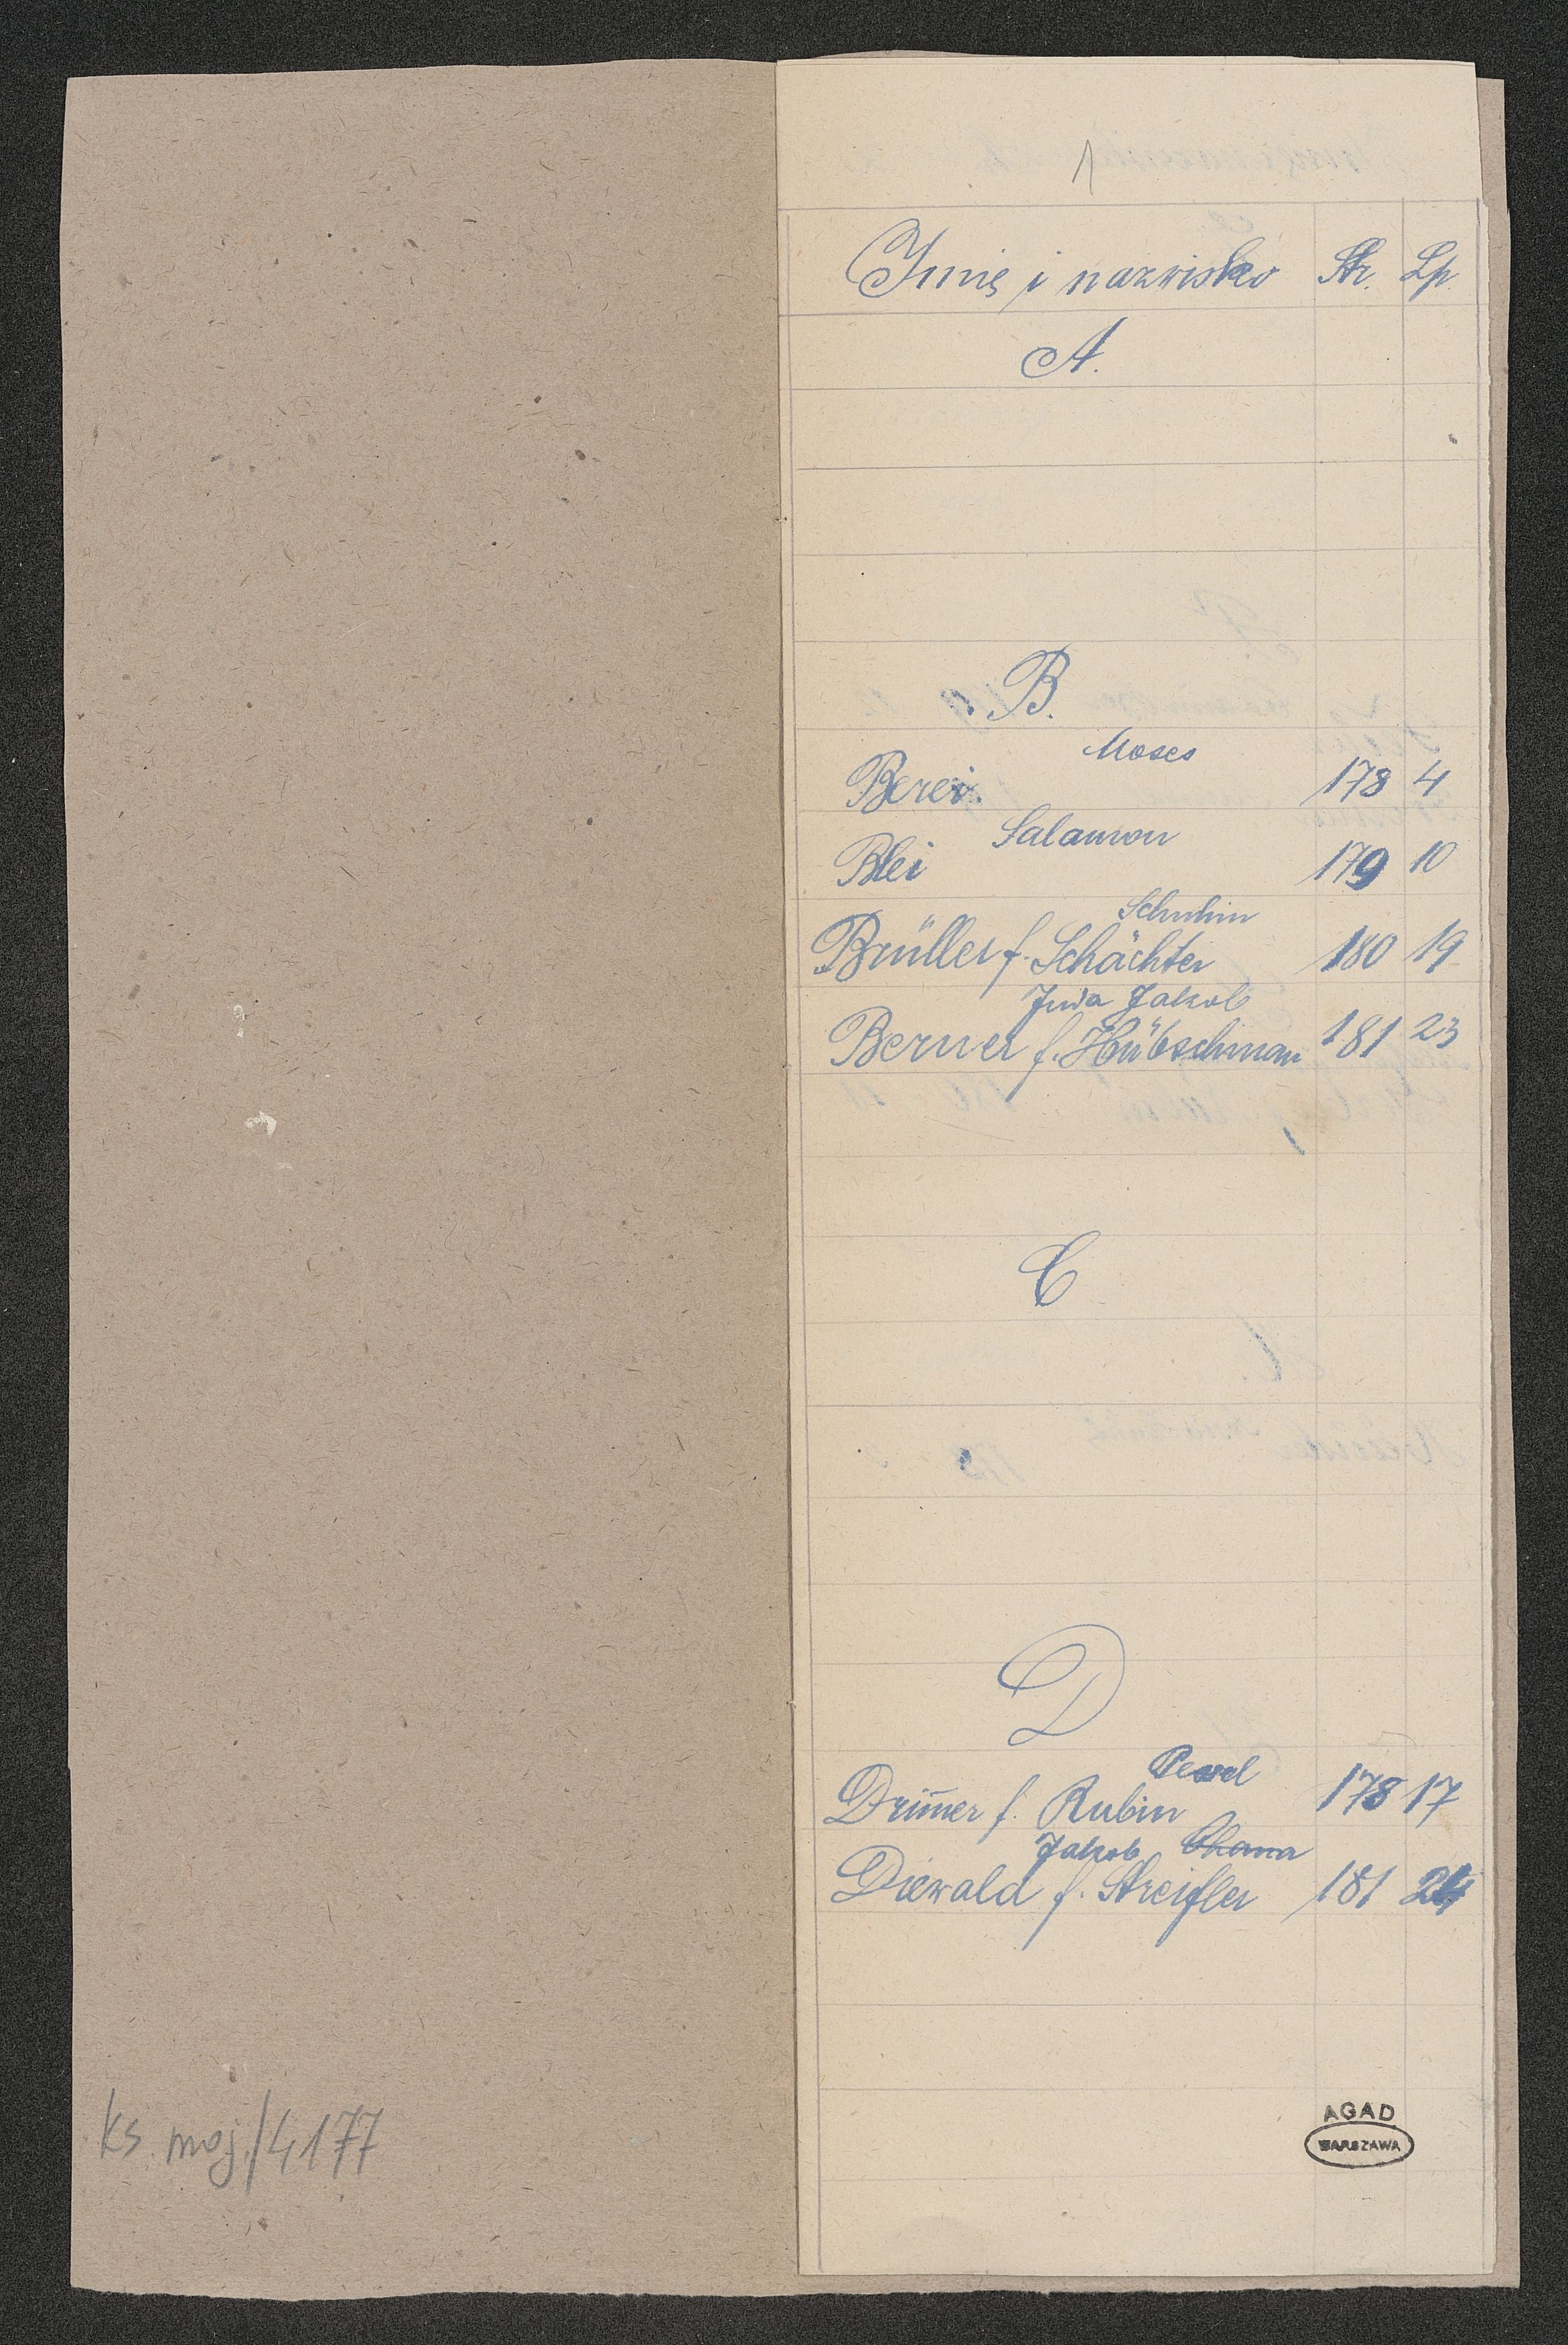 ks moj/4177
1
Imię i nazwisko Str. Lp.
A.
B.
Moses
Berei. 178 4
Salamon
Blei 179 10
Brüller f. Schächter 180 19
Juda Jakob
Berner f. Hübschman 181 23
C
D
Pessel
Drimer f. Rubin 178 17
Jakob Chana
Diewald f. Streifler 181 24
AGAD
WARSZAWA